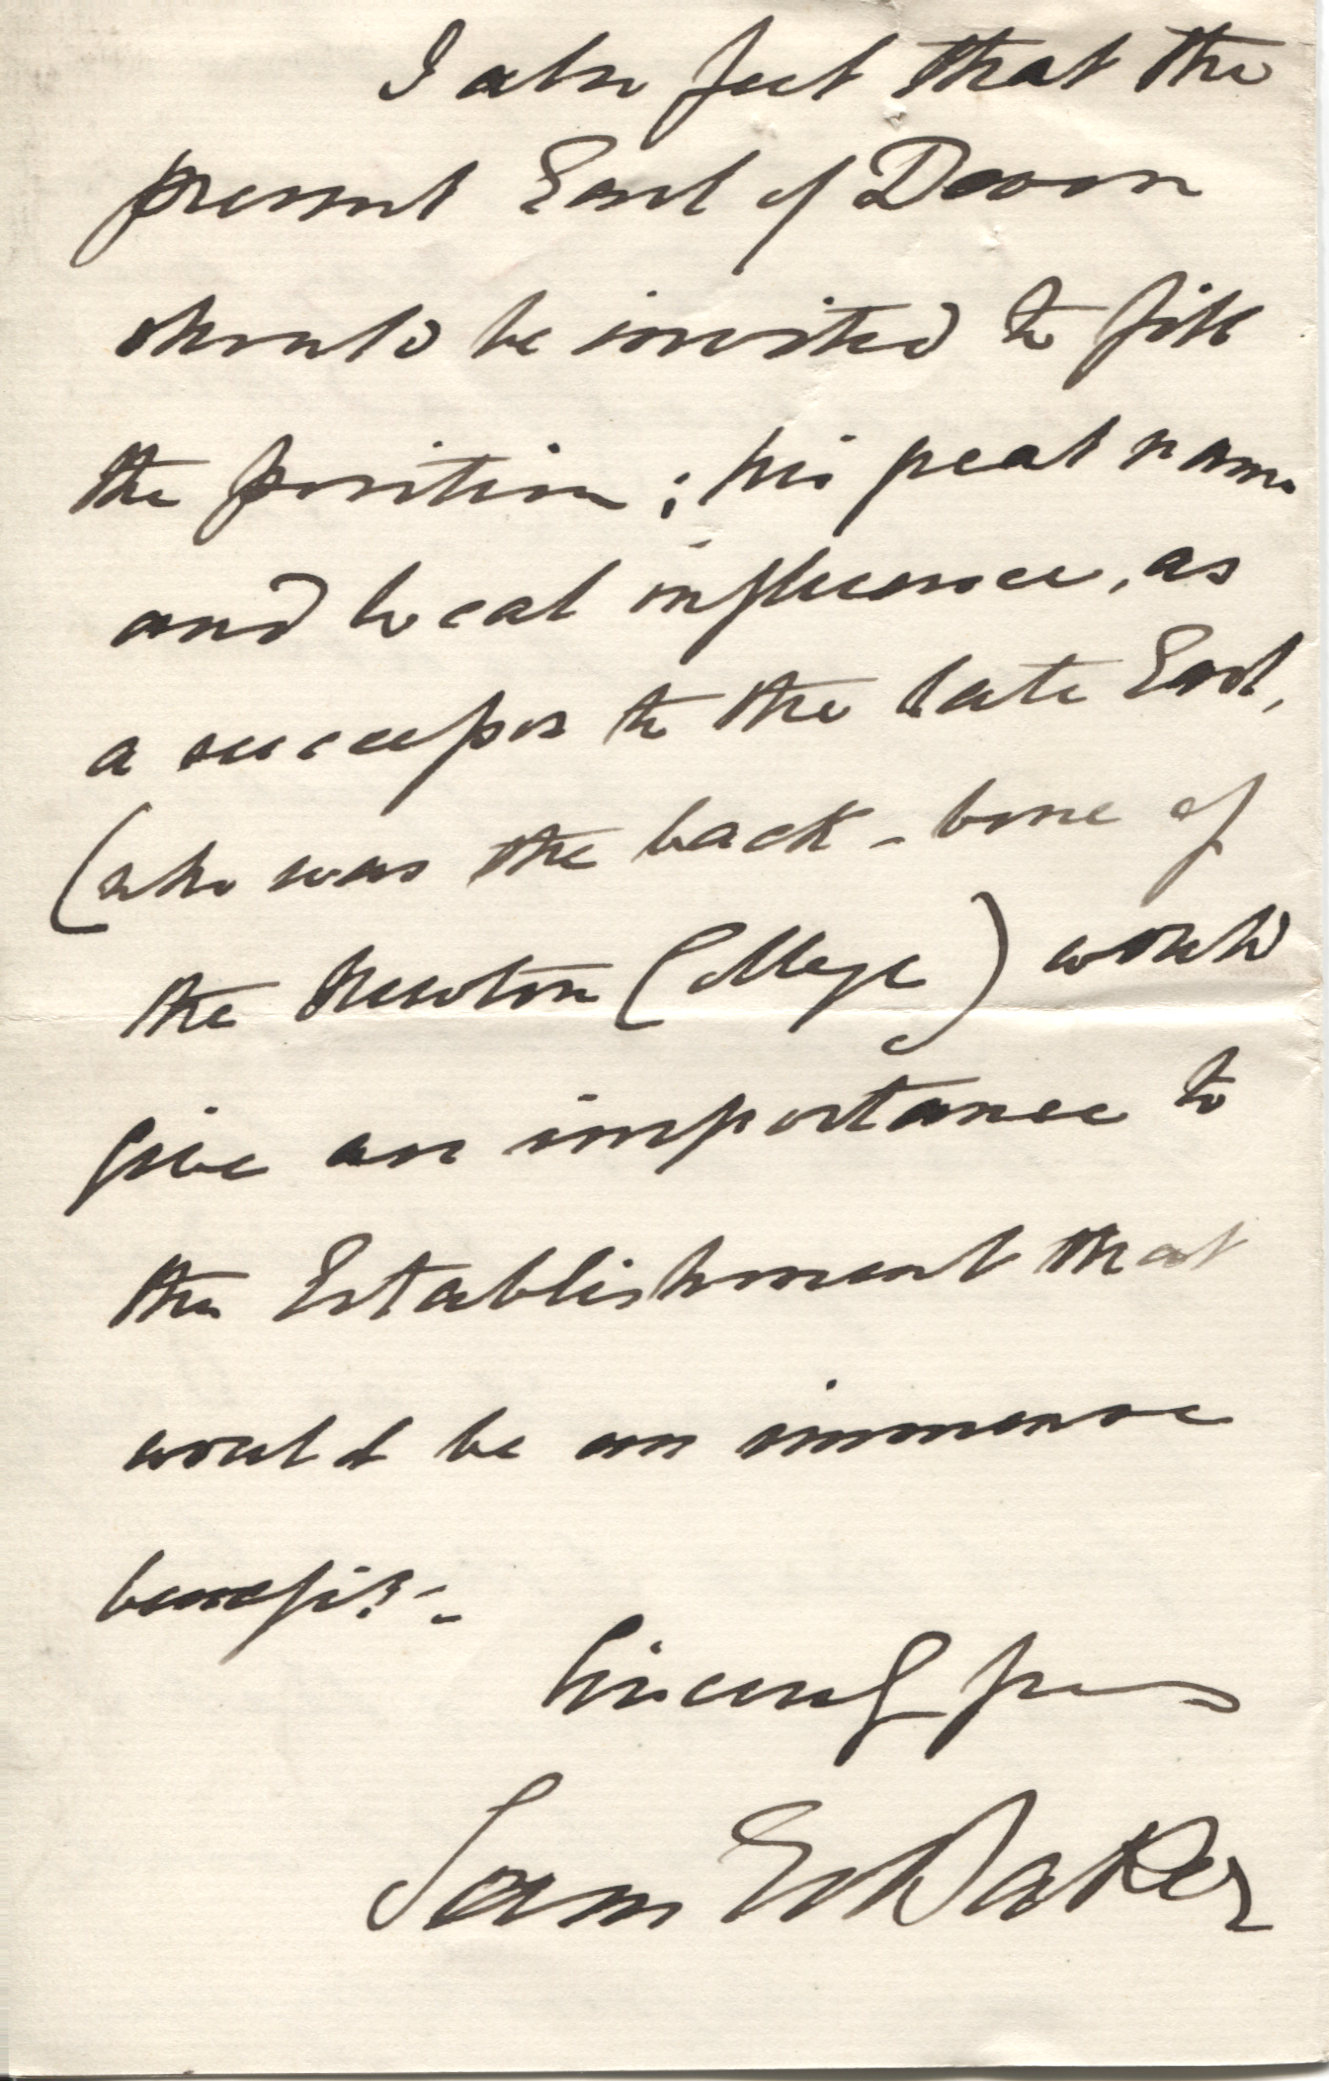 I also feel that the
present Earl of Devon
should be invited to fill
the position; his great name
and local influence, as
a successor to the late Earl,
(who was the back-bone of
the Newton College) would
give an importance to
the Establishment that
would be an immense
benefit.-
Sincerely yours
Sam W Baker